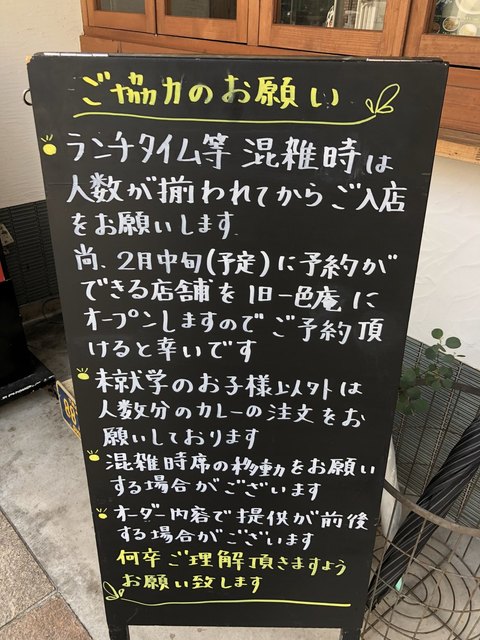 ご協力のお願い
ランチタイム等 混雑時は
人数が揃われてからご入店
をお願いします
尚、2月中旬(予定)に予約が
できる店舗を旧一色庵に
オープンしますのでご予約頂
けると幸いです
未就学のお子様以外は
人数分のカレーの注文をお
願いしております
混雑時席の移動をお願い
する場合がございます
オーダー内容で提供が前後
する場合がございます
何卒ご理解頂きますよう
お願い致します